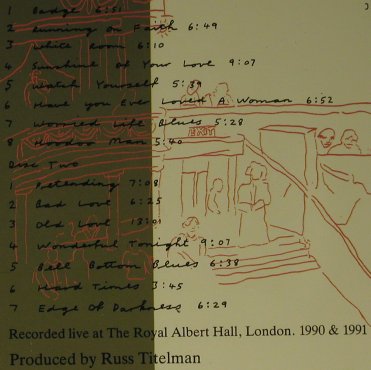 1 Badge 6:51
2 Running on Faith 6:49
3 White Room 6:10
4 Sunshine of Your Love 9:07
5 Watch Yourself 5:39
6 Have you Ever Loved A Woman 6:52
7 Worried Life Blues 5:28
8 Hoodoo Man 5:40
EXIT
Disc Two
1 Pretending 7:08
2 Bad Love 6:25
3 Old Love 13:01
4 Wonderful Tonight 9:07
5 Bell Bottom Blues 6:38
6 Hard Times 3:45
7 Edge Of Darkness 6:29
Recorded live at The Royal Albert Hall, London. 1990 & 1991
Produced by Russ Titelman